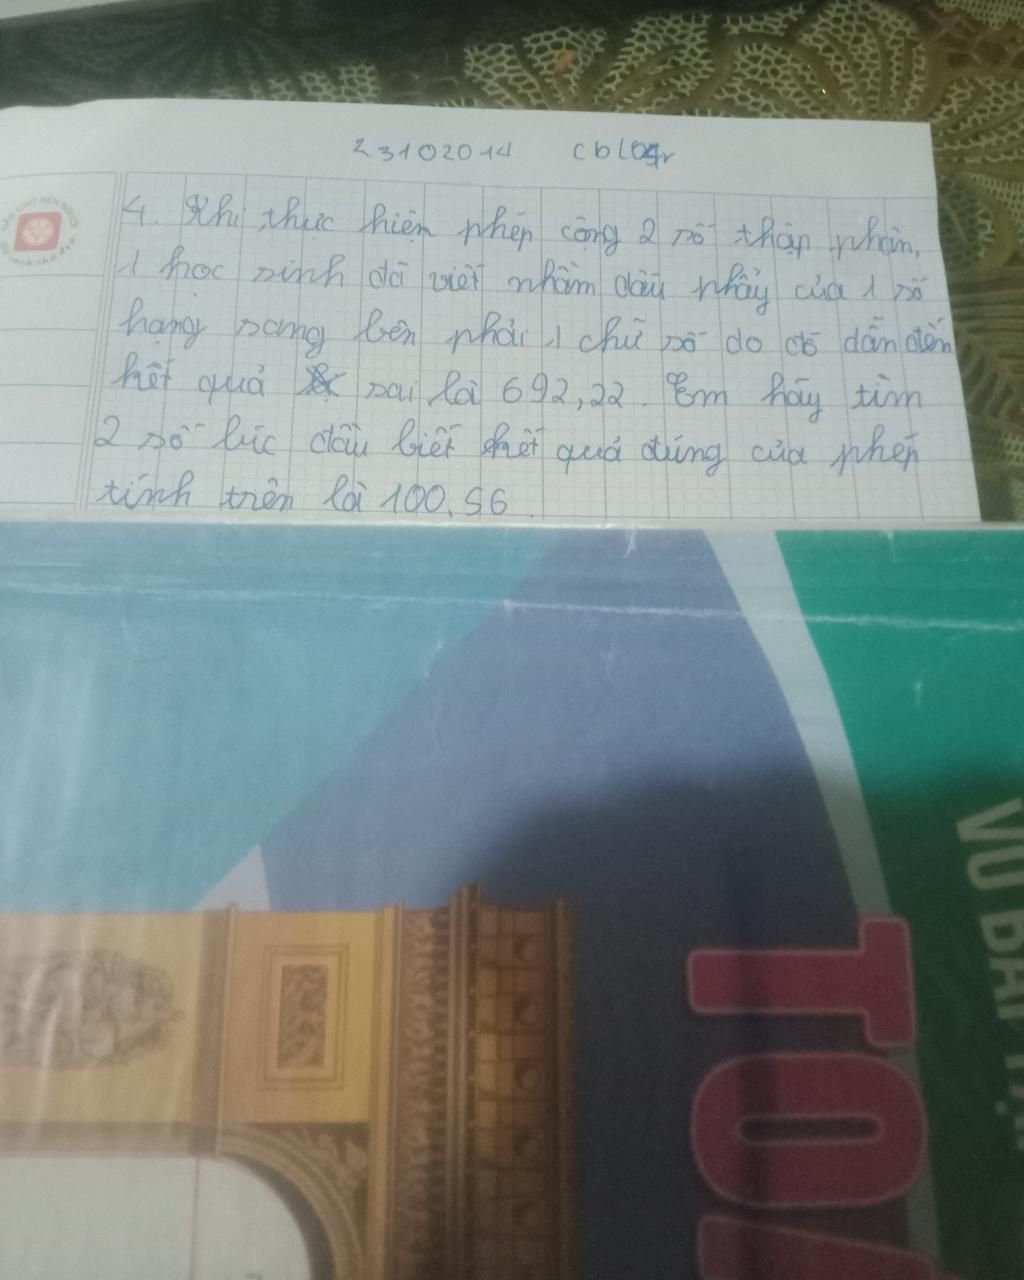 23102014 cblogr
4. Khi thực hiện phép cộng 2 số thập phân,
1 học sinh đã viết nhầm dấu phẩy của 1 số
hạng sang bên phải 1 chữ số do đó dẫn đến
kết quả sai là 692,22. Em hãy tìm
2 số lúc đầu biết kết quả đúng của phép
tính trên là 100,56.
VỞ BÀI TẬP
TOÁ